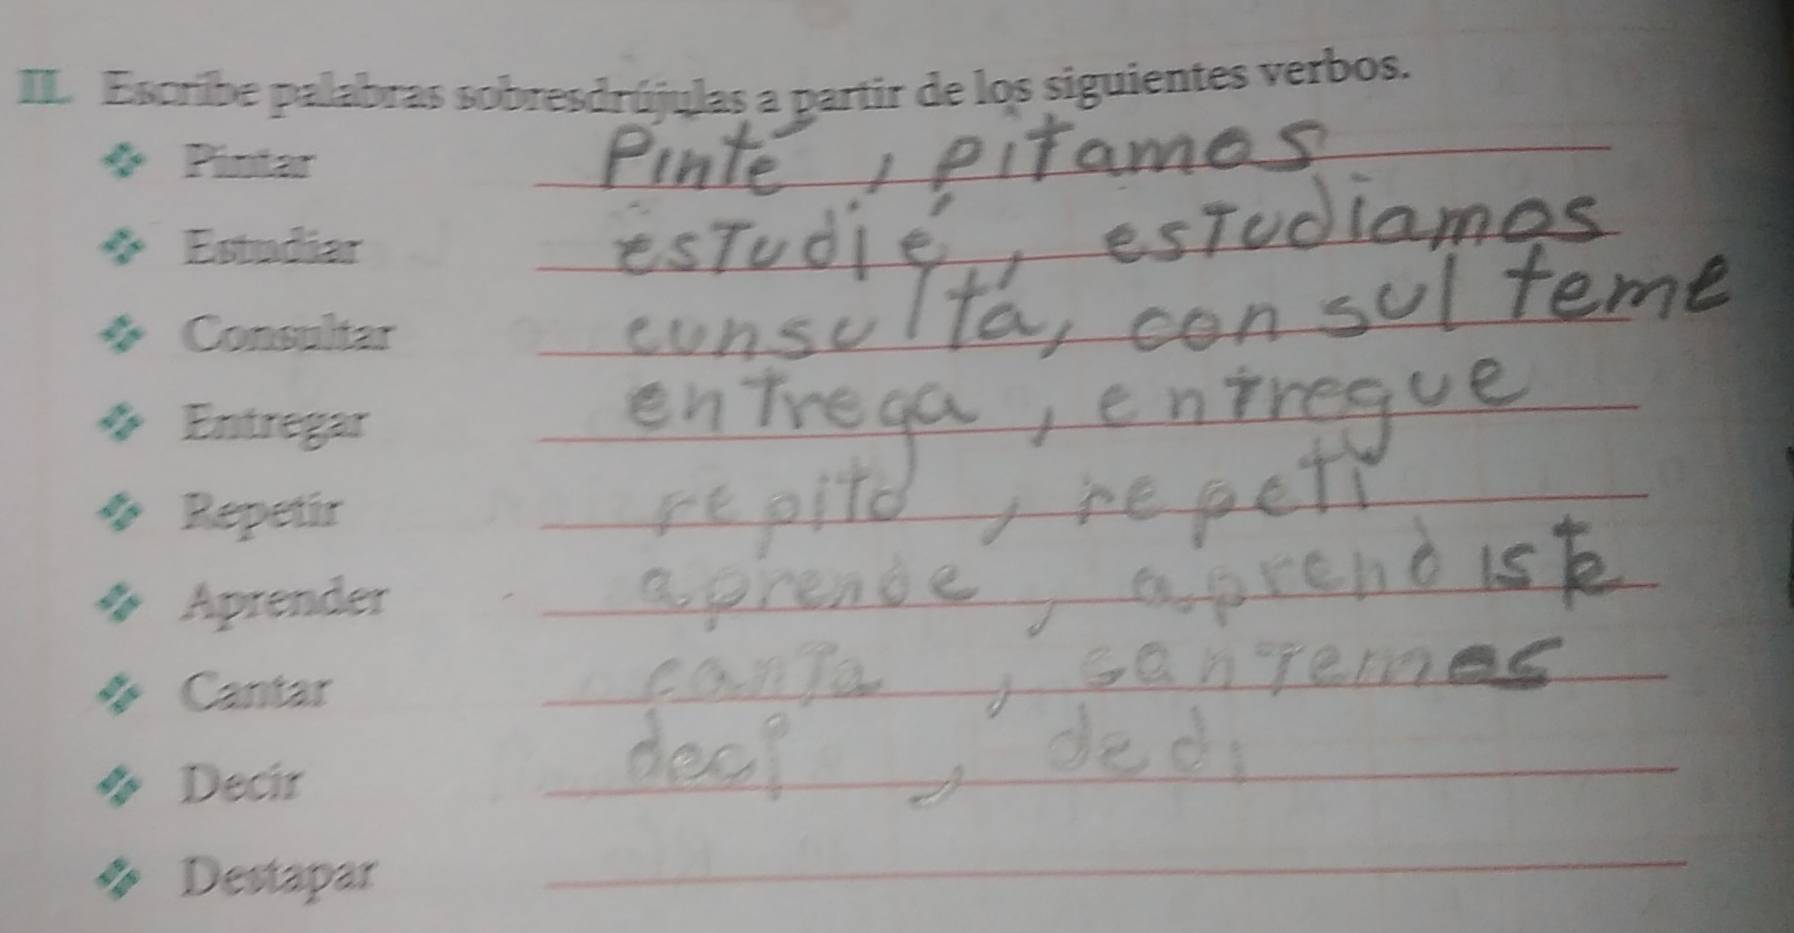 III. Escribe palabras sobresdrújulas a partir de los siguientes verbos.
Pintar Pinté, pitamos
Estudiar estudié, estudiamos
Consultar cunsulta, consulteme
Entregar entrega, entregue
Repetir repito, repeti
Aprender aprende, aprendiste
Cantar canta, cantemos
Decir deci, dedi
Destapar